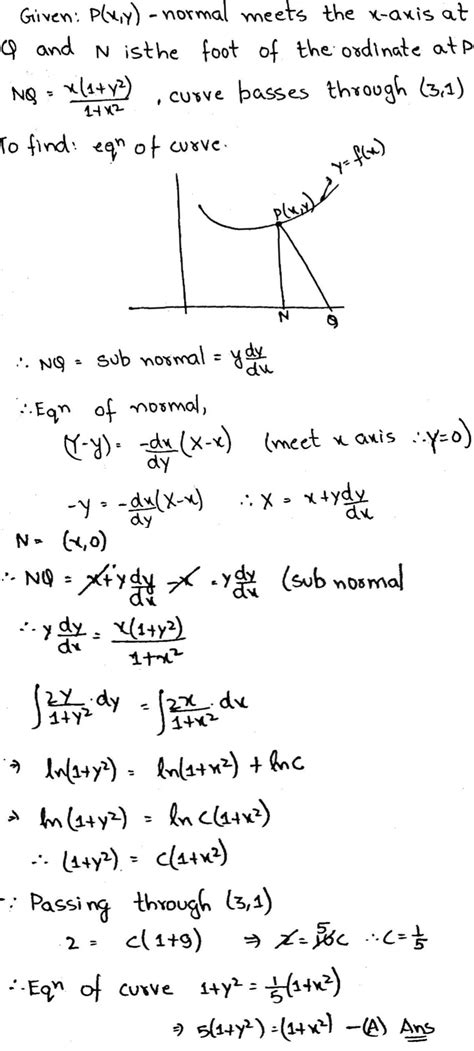 Given: P(x,y) - normal meets the x-axis at
Q and N is the foot of the ordinate at P
NQ = x(1+y²)/1+x² , curve passes through (3,1)
To find: eqⁿ of curve.
y=f(x)
P(x,y)
N Q
∴ NQ = sub normal = y dy/dx
∴ Eqn of normal,
(Y-y) = -dx/dy (X-x) (meet x axis ∴ Y=0)
-y = -dx/dy (X-x) ∴ X = x+y dy/dx
N = (x,0)
∴ NQ = x+y dy/dx - x = y dy/dx (sub normal
∴ y dy/dx = x(1+y²)/1+x²
∫ 2y/1+y² · dy = ∫ 2x/1+x² · dx
⇒ ln(1+y²) = ln(1+x²) + lnc
⇒ ln(1+y²) = ln c(1+x²)
∴ (1+y²) = c(1+x²)
∵ Passing through (3,1)
2 = c(1+9) ⇒ 2 = 10 5 c ∴ c = 1/5
∴ Eqn of curve 1+y² = 1/5 (1+x²)
⇒ 5(1+y²) = (1+x²) - (A) Ans